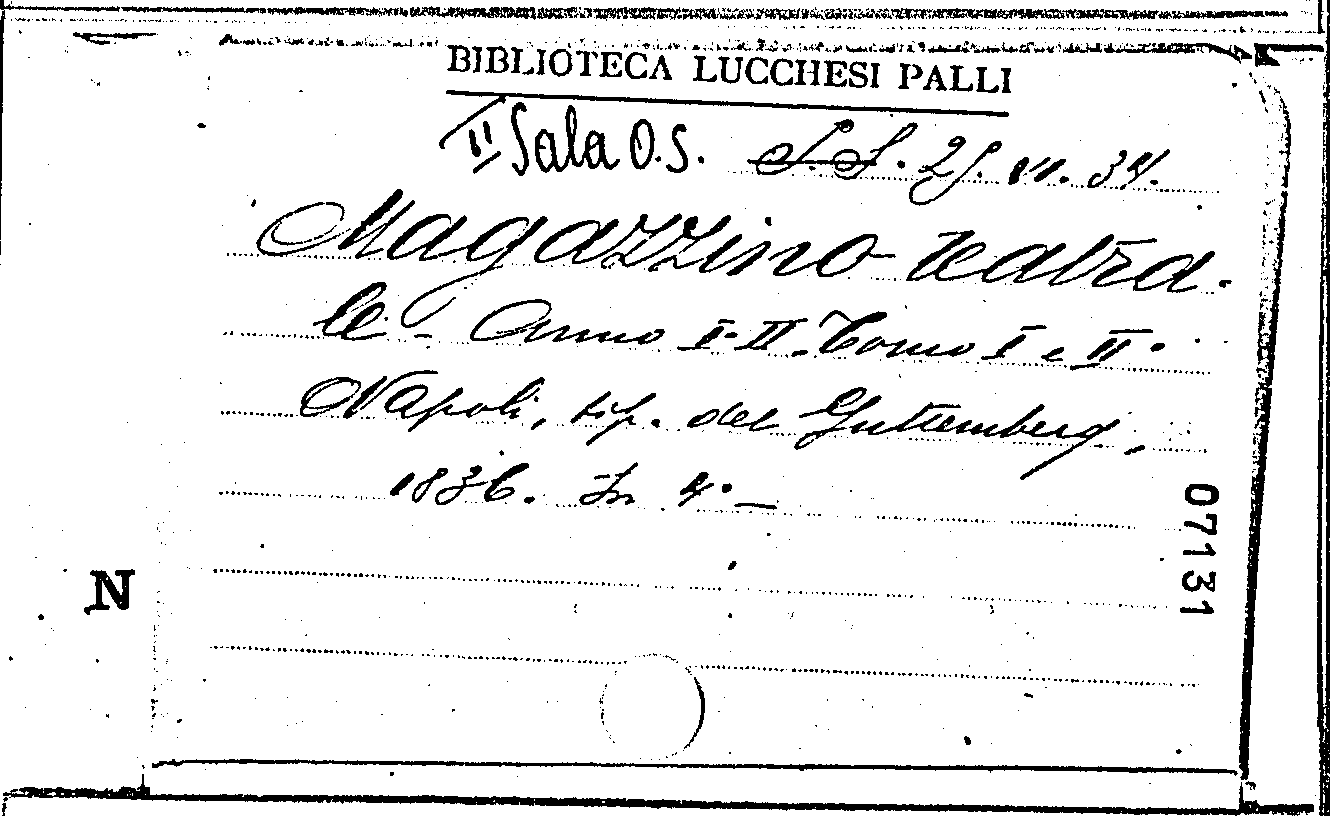 BIBLIOTECA LUCCHESI PALLI
II Sala O.S. S.S. 29. VI. 34.
Magazzino teatra-
le - Anno I-II. Tomo I e II.
Napoli, tip. del Guttemberg,
1836. In 4° —
07131
N